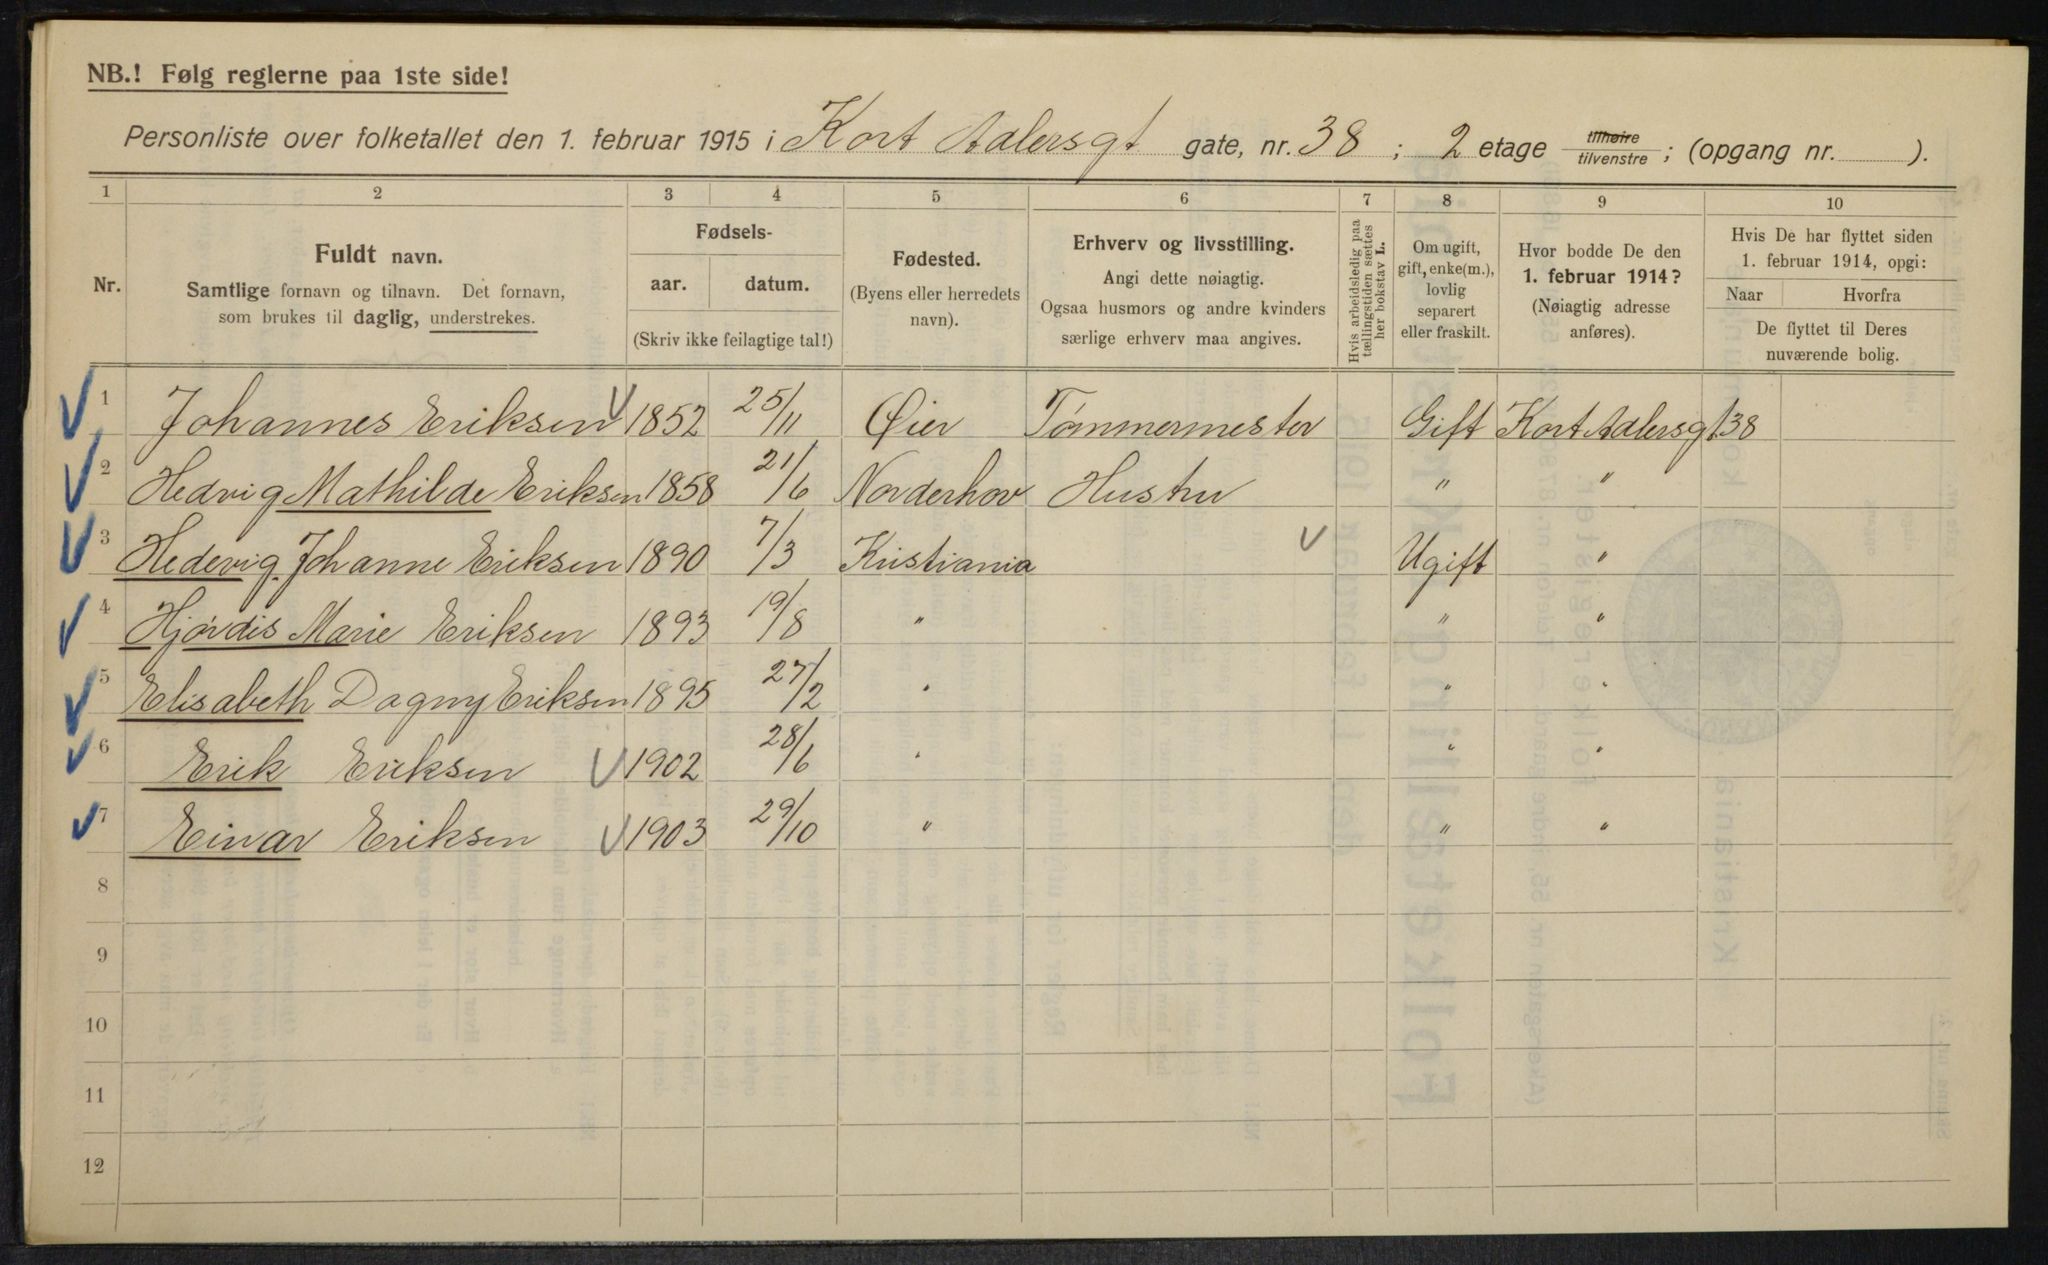 NB.! Følg reglerne paa 1ste side!
Personliste over folketallet den 1. februar 1915 i Kort Adlersgt gate, nr. 38 ; 2 etage tilhøire/tilvenstre ; (opgang nr. ).
1 2 3 4 5 6 7 8 9 10
Nr.
Fuldt navn.
Samtlige fornavn og tilnavn. Det fornavn,
som brukes til daglig, understrekes.
Fødsels-
aar. datum.
(Skriv ikke feilagtige tal!)
Fødested.
(Byens eller herredets
navn).
Erhverv og livsstilling.
Angi dette nøiagtig.
Ogsaa husmors og andre kvinders
særlige erhverv maa angives.
Hvis arbeidsledig paa
tællingstiden sættes
her bokstav L.
Om ugift,
gift, enke(m.),
lovlig
separert
eller fraskilt.
Hvor bodde De den
1. februar 1914?
(Nøiagtig adresse
anføres).
Hvis De har flyttet siden
1. februar 1914, opgi:
Naar Hvorfra
De flyttet til Deres
nuværende bolig.
1 Johannes Eriksen 1852 25/11 Øier Tømmermester Gift Kort Adlersgt 38
2 Hedvig Mathilde Eriksen 1858 21/6 Norderhov Hustru " "
3 Hedevig Johanne Eriksen 1890 7/3 Kristiania Ugift "
4 Hjørdis Marie Eriksen 1893 19/8 " " "
5 Elisabeth Dagny Eriksen 1895 27/2 " " "
6 Erik Eriksen 1902 28/6 " " "
7 Einar Eriksen 1903 29/10 " " "
8
9
10
11
12